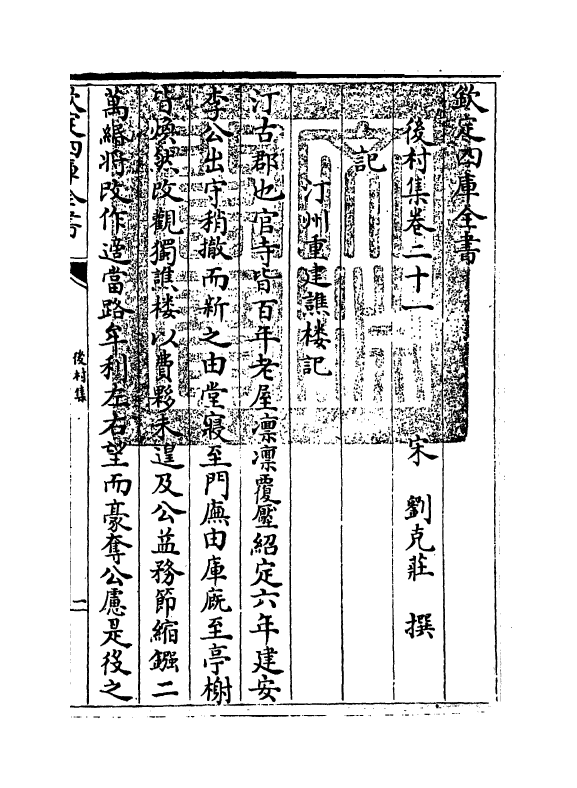 欽定四庫全書
後村集卷二十一
宋 劉克莊 撰
記
汀州重建譙楼記
汀古郡也官寺皆百年老屋凛凛覆壓紹定六年建安
李公出守稍撤而新之由堂寢至門廡由庫廐至亭榭
皆煥然改觀獨譙楼以費夥未遑及公益務節縮鏹二
萬緡將改作適當路牟利左右望而豪奪公慮是役之
欽定四庫全書
後村集